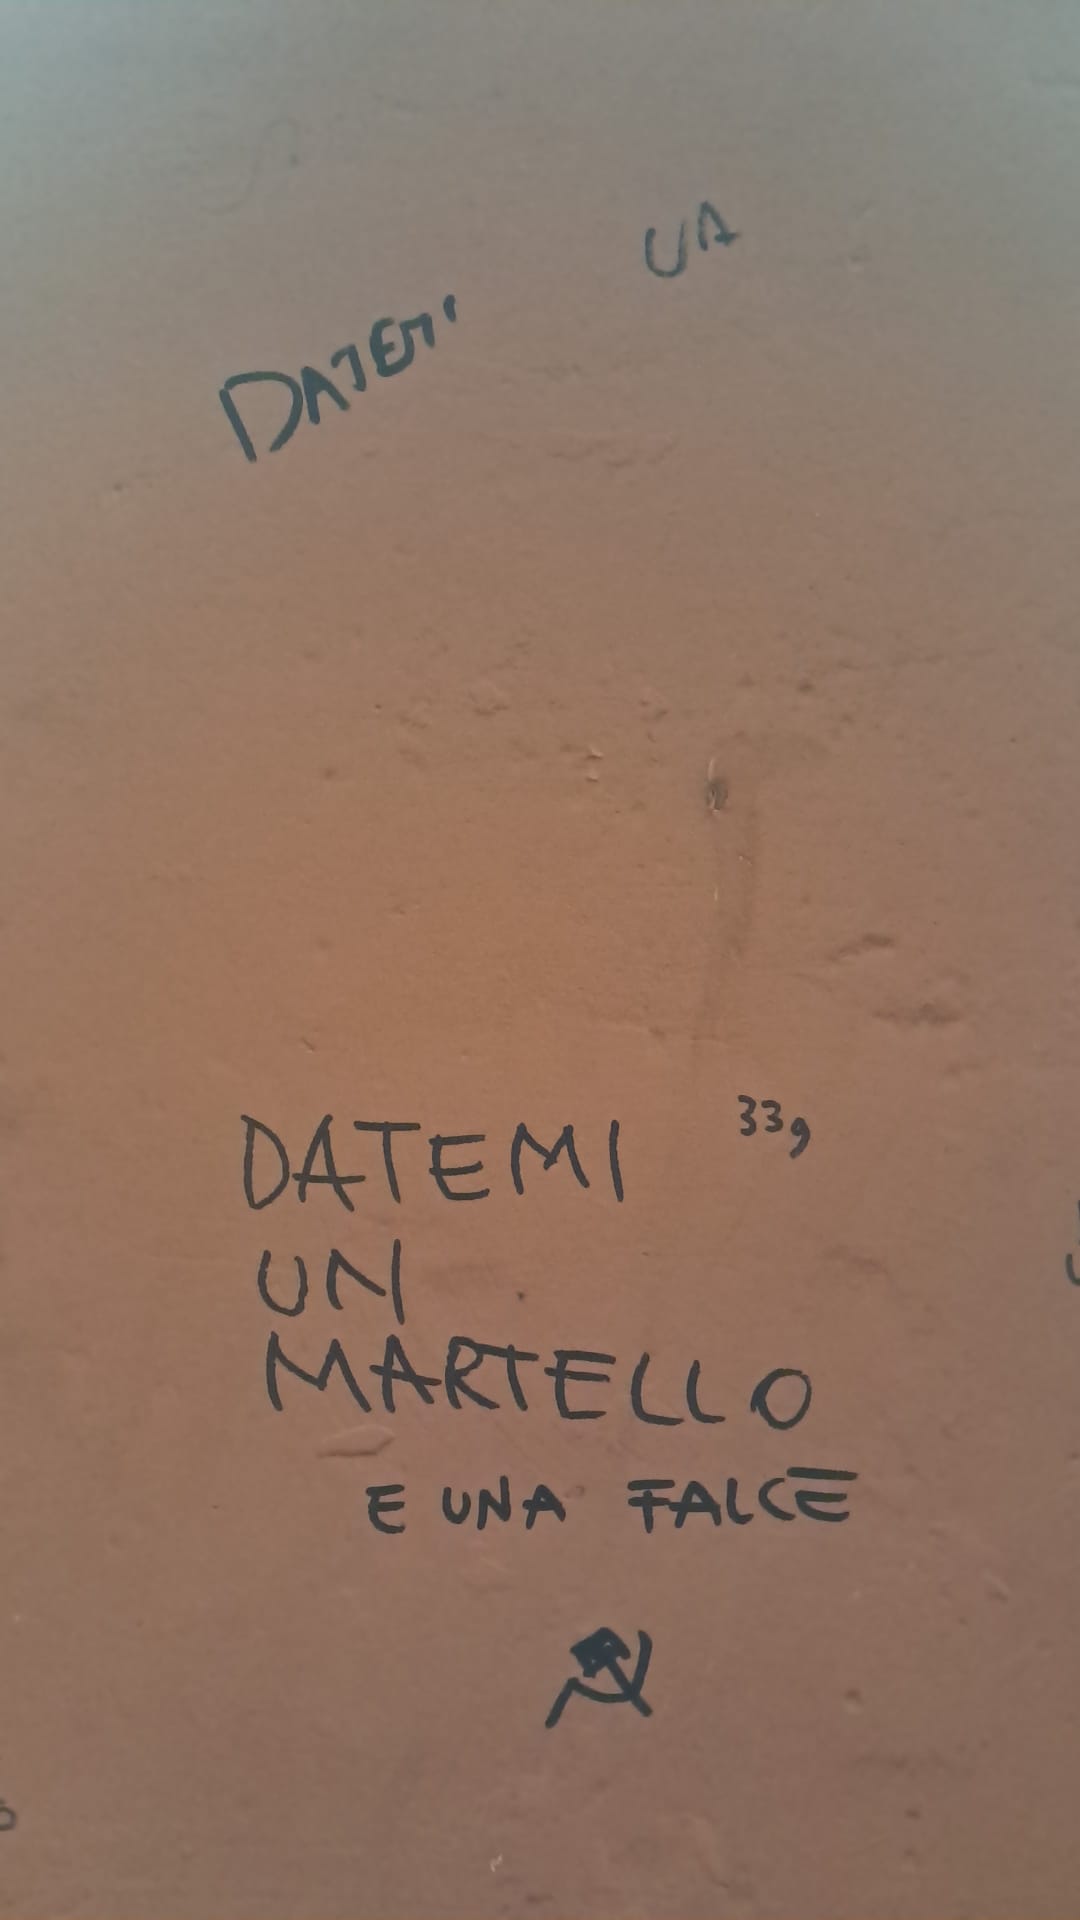 UA
DATEMI
DATEMI 339
UN
MARTELLO
E UNA FALCE